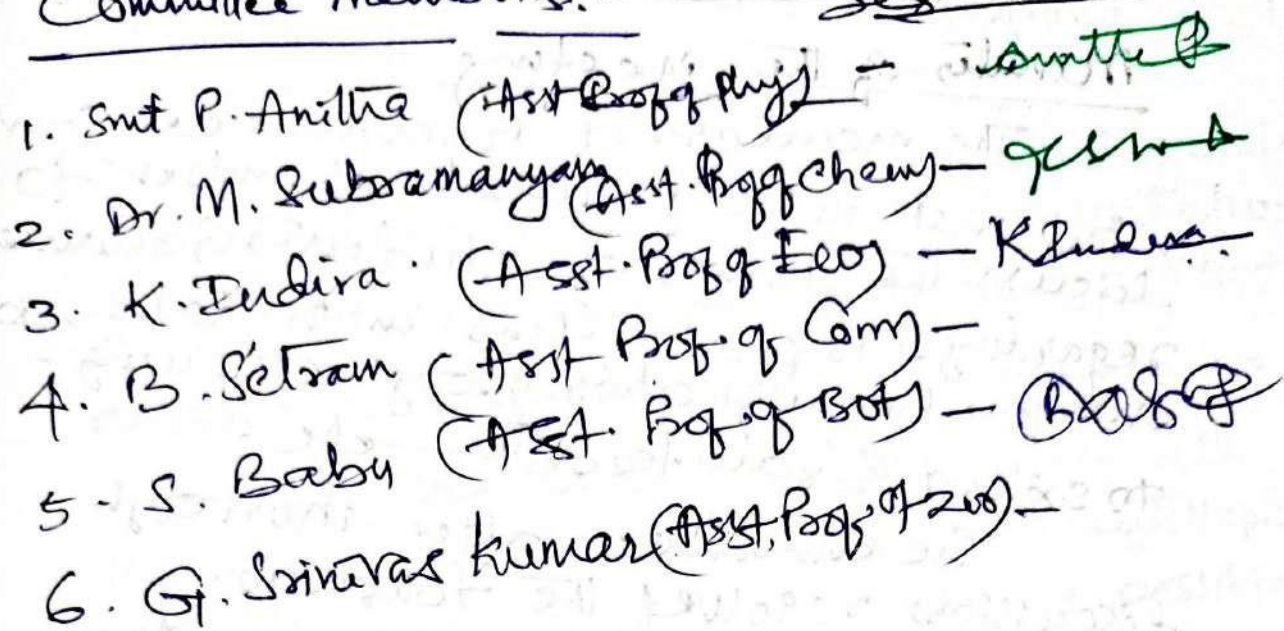 Committee Members:
1. Smt P. Anitha (Asst Prof of Phy) -
2. Dr. M. Subramanyam (Asst. Prof of Chem) -
3. K. Indira. (Asst. Prof of Eco) - K Indira
4. B. Setram (Asst Prof. of Com) -
5. S. Babu (Asst. Prof. of Bot) -
6. G. Srinivas kumar (Asst. Prof. of Zoo) -